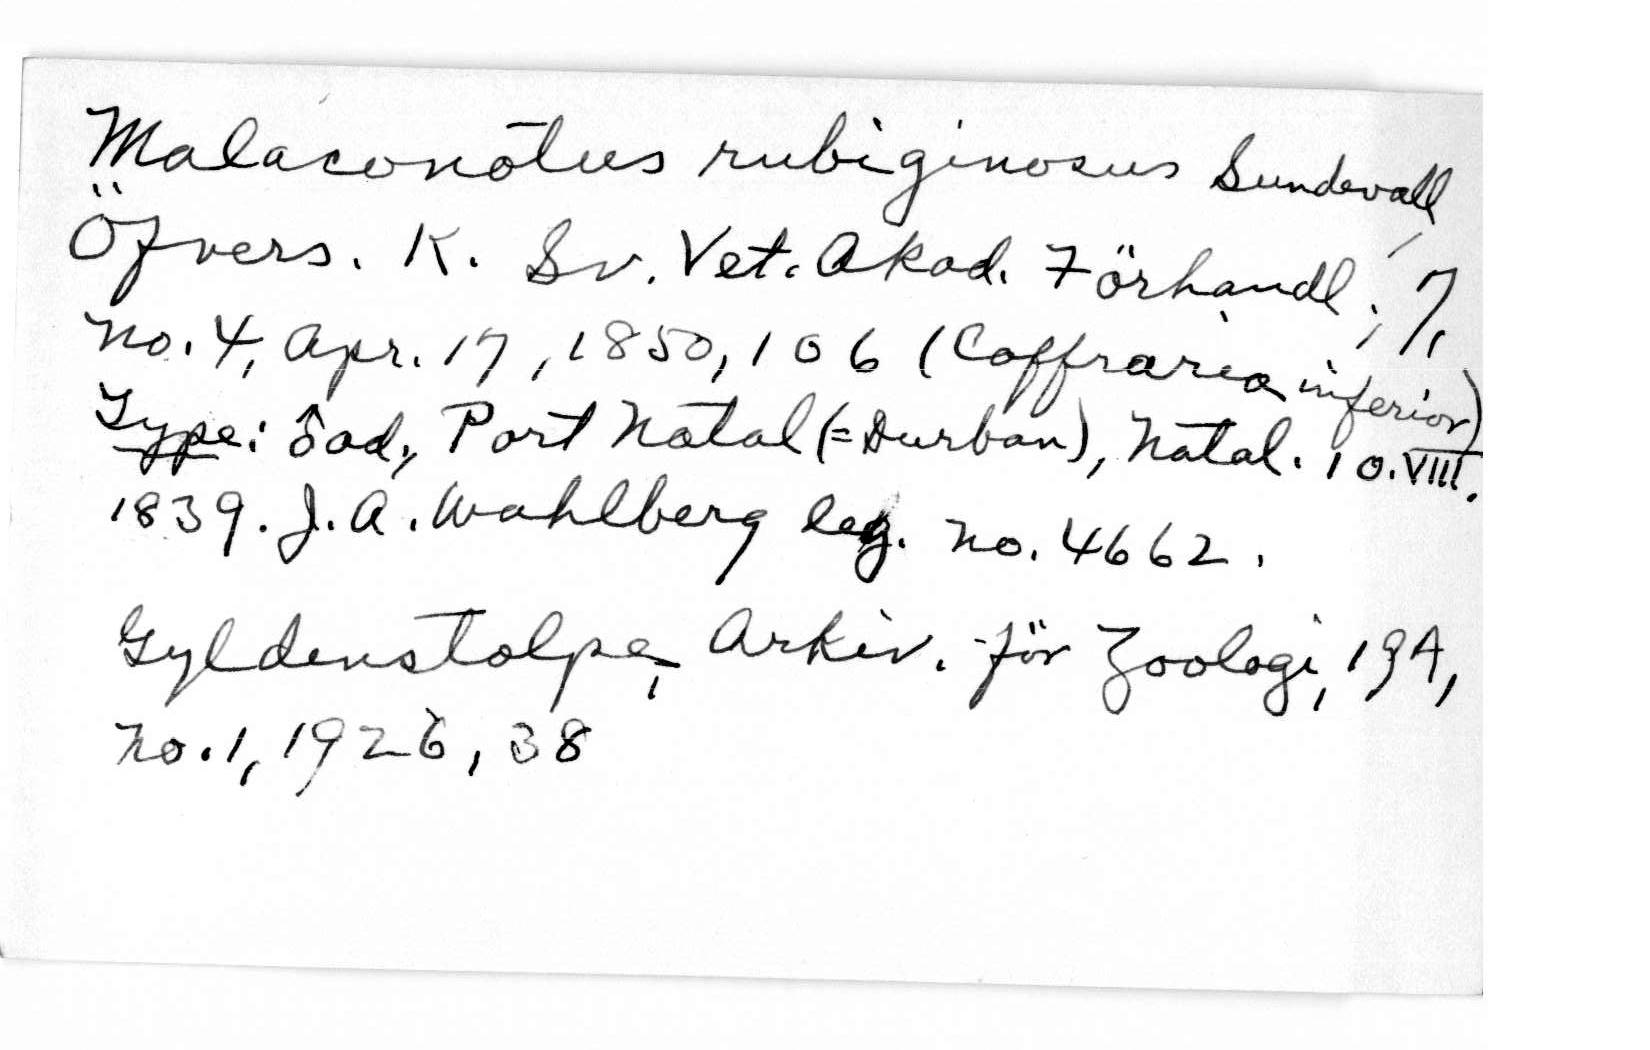 Malaconotus rubiginosus Sundevall,
Öfvers. K. Sv. Vet. Akad. Förhandl., 7,
no. 4, Apr. 17, 1850, 106 (Caffraria inferior)
Type: ♂ ad., Port Natal (= Durban), Natal. 10.VIII.
1839. J. A. Wahlberg leg. no. 4662.
Gyldenstolpe, Arkiv. för Zoologi, 19A,
no. 1, 1926, 38